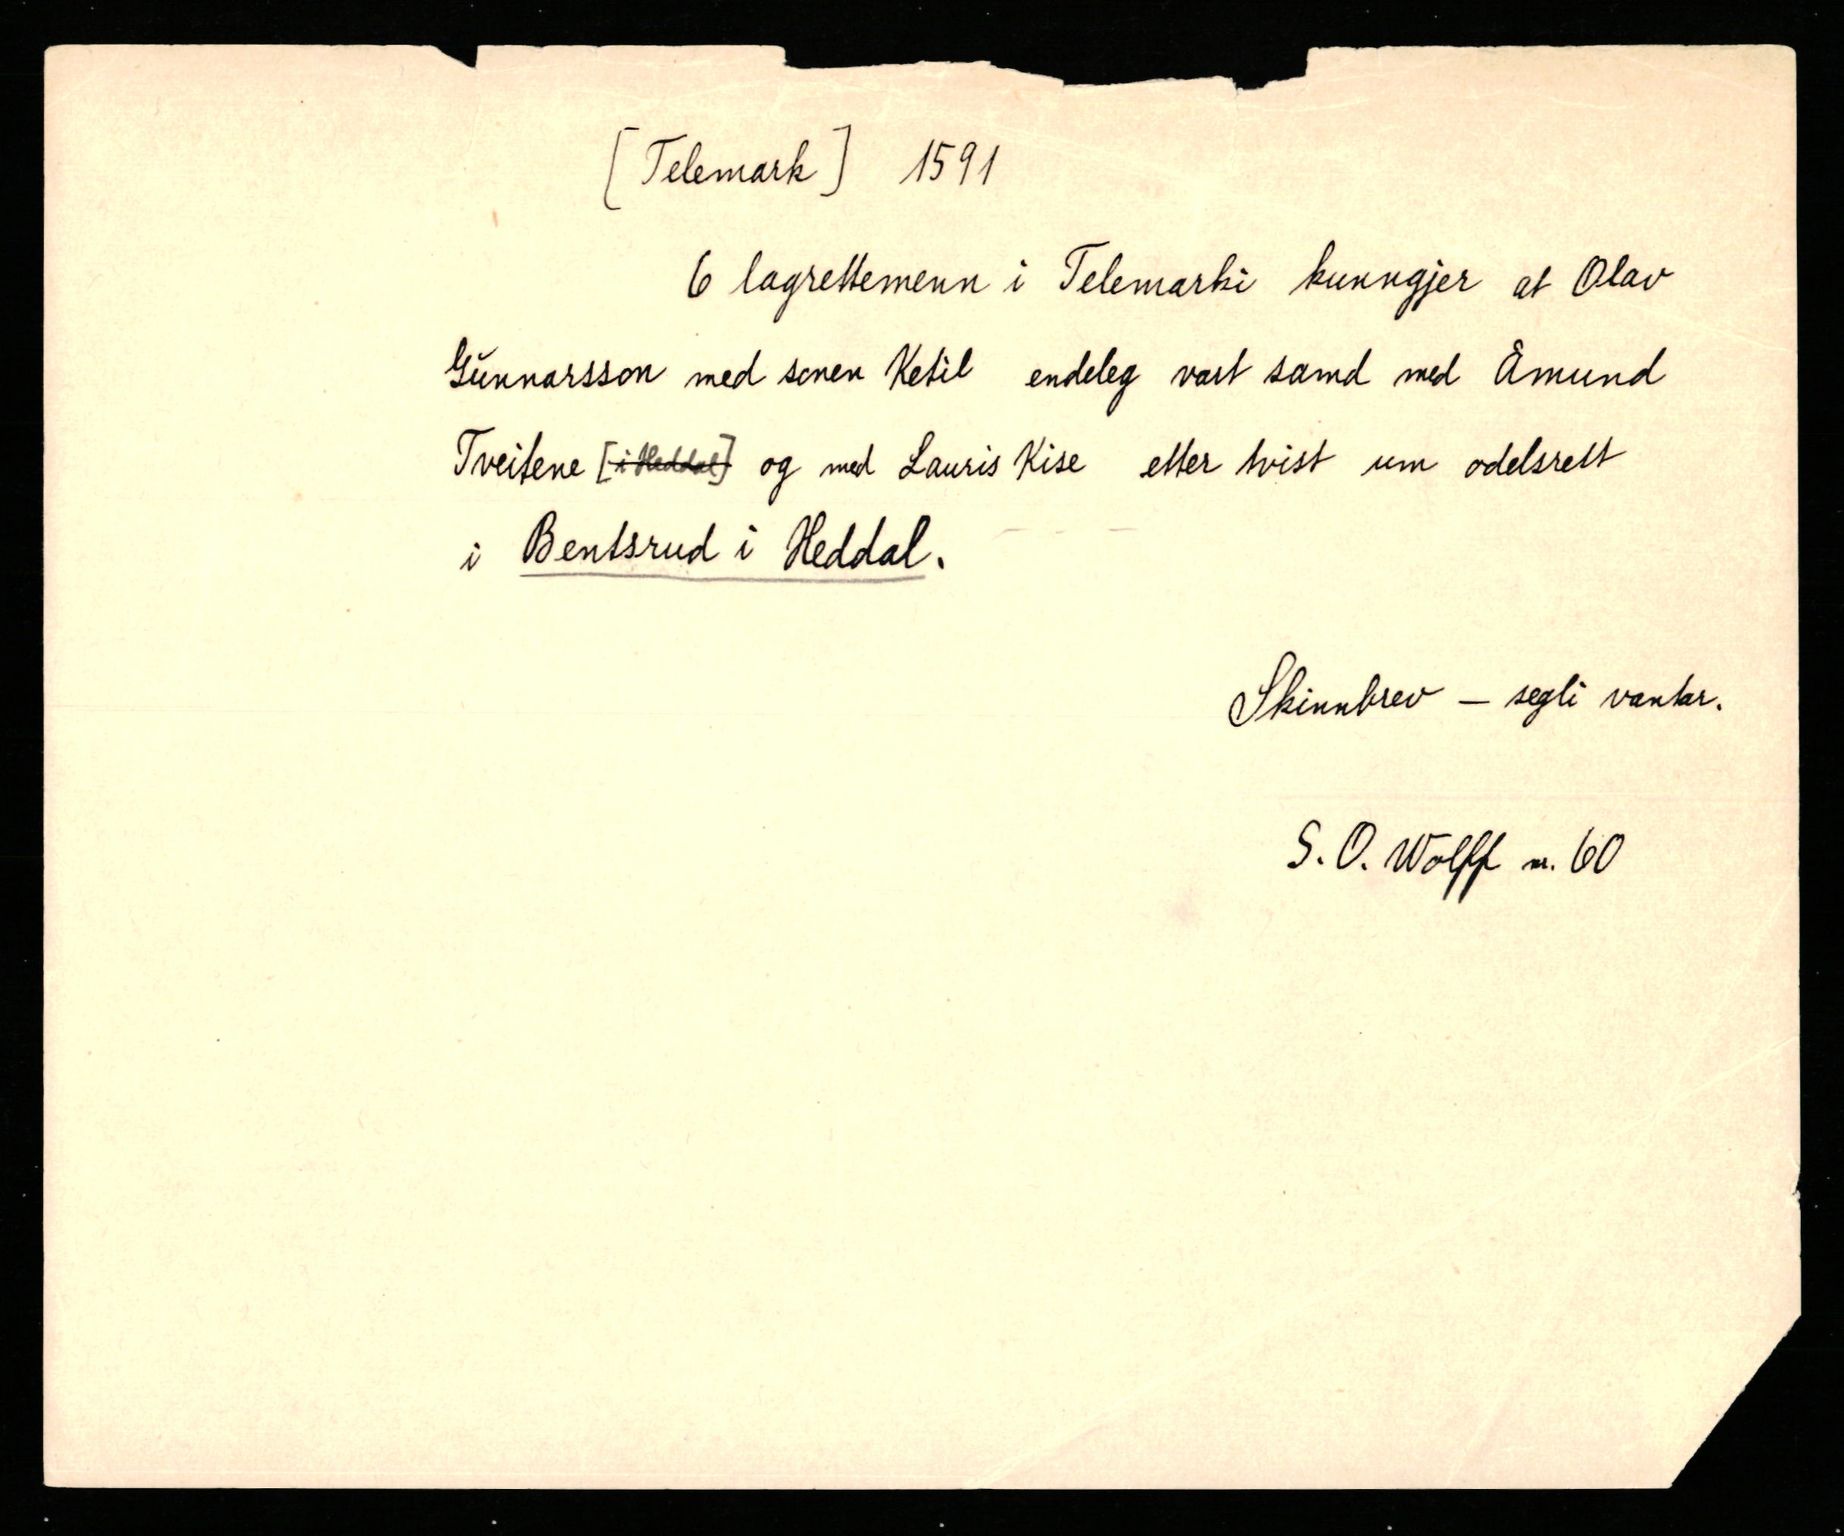 [Telemark] 1591
6 lagrettemenn i Telemarki kunngjer at Olav
Gunnarsson med sonen Ketil endeleg vart samd med Åmund
Tveitene [i Heddal] og med Lauris Kise etter tvist um odelsrett
i Bentsrud i Heddal.
Skinnbrev – segli vantar.
S. O. Wolff nr. 60